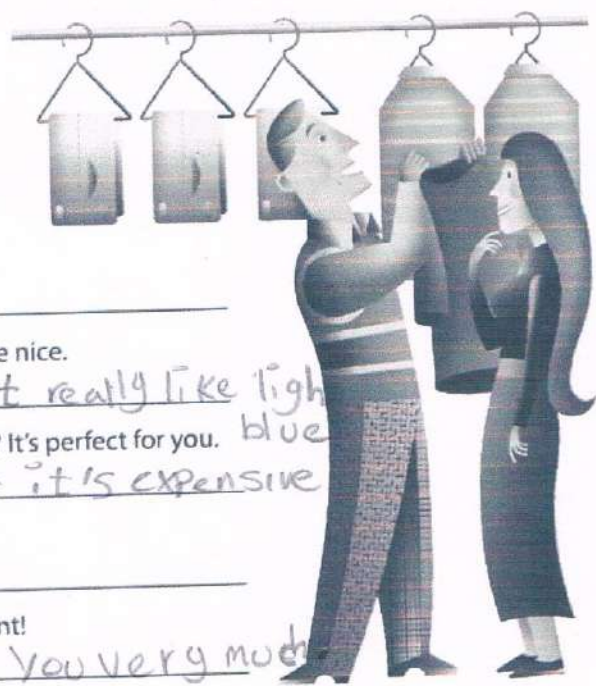 e nice.
t really like ligh
It's perfect for you. blue
it's expensive
nt!
you very much